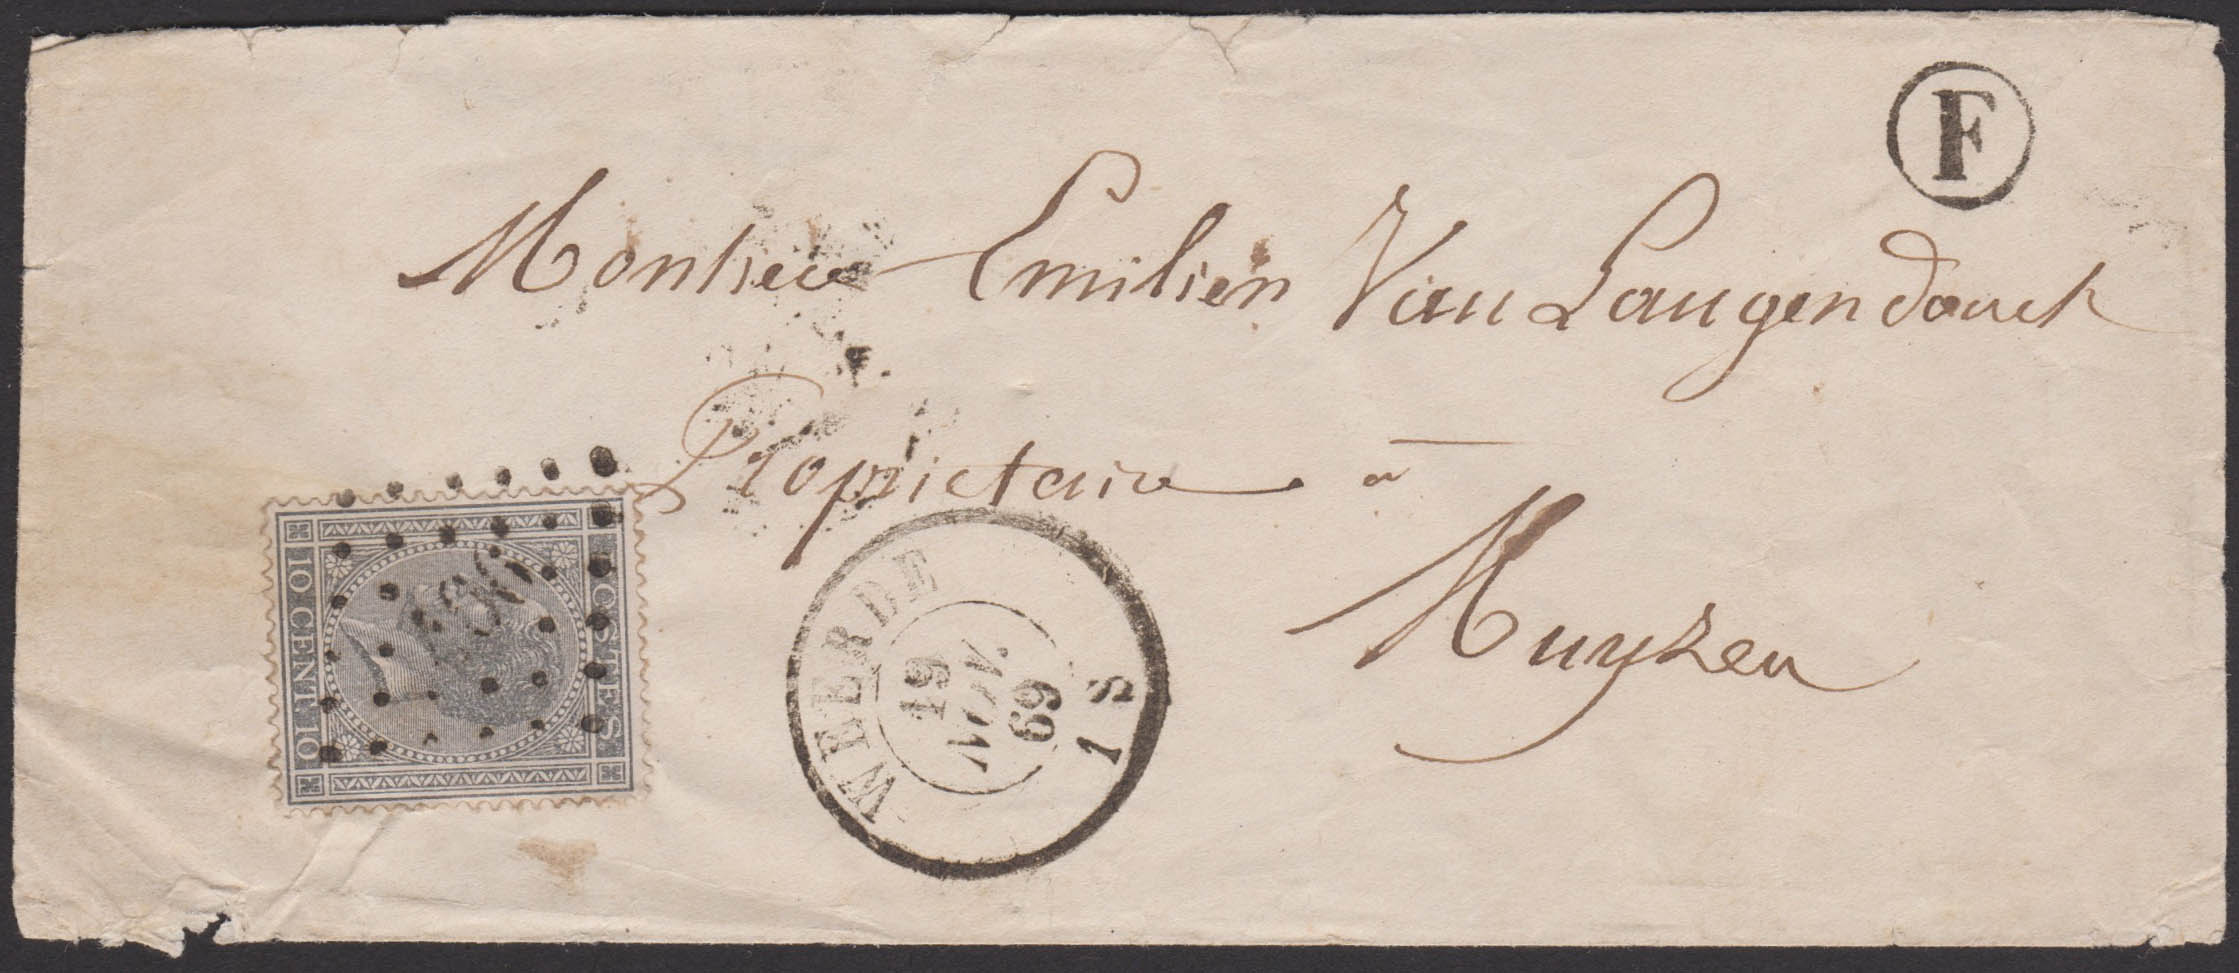 F
Monsieur Emilien Van Langendonck
Propriétaire à
Muyzen
POSTES
10 CENT. 10
WEERDE
19
NOV.
69
1 S